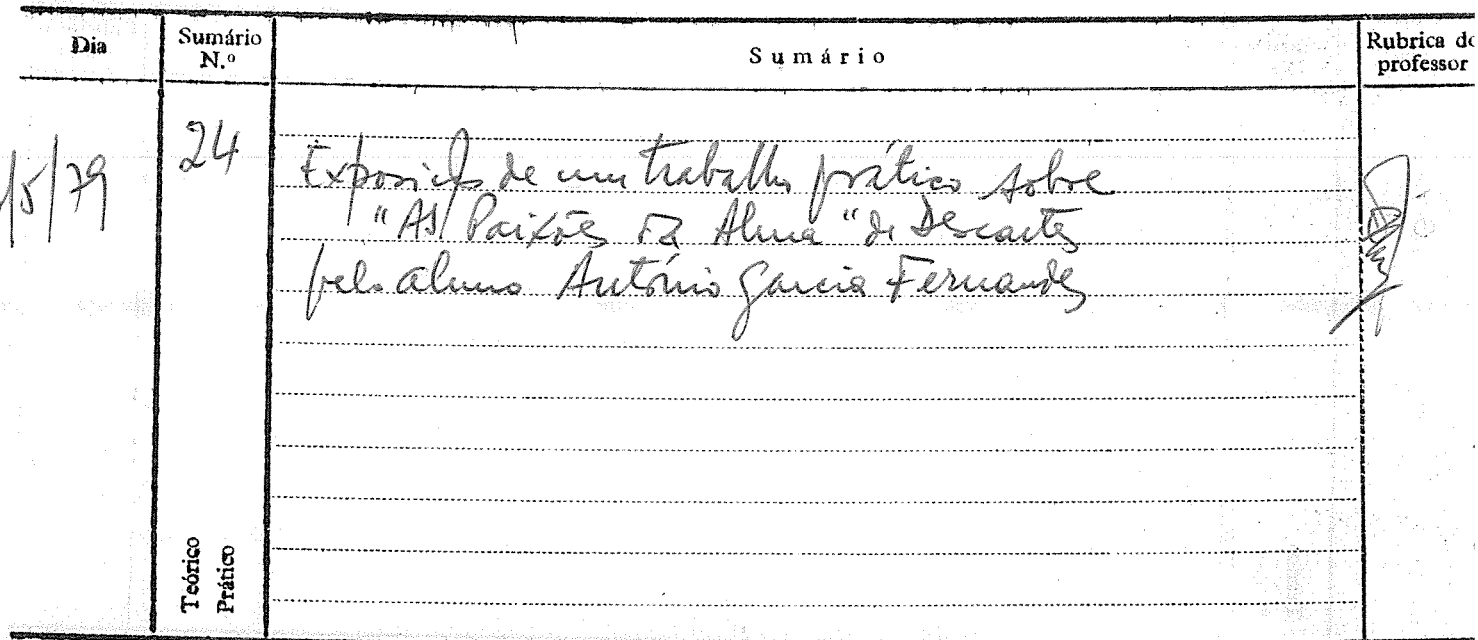 Dia
Sumário
N.º
Sumário
Rubrica do
professor
/5/79
24
Exposição de um trabalho prático sobre
"As Paixões da Alma" de Descartes
pelo aluno António Garcia Fernandes
Teórico
Prático